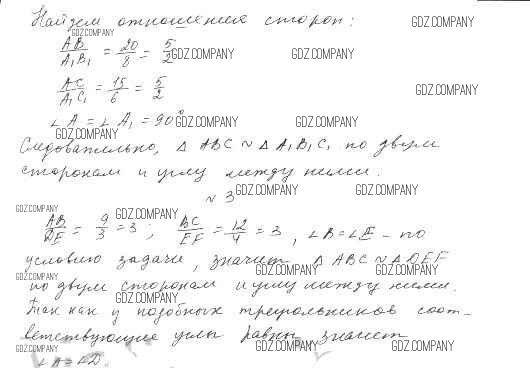 Найдем отношения сторон:
GDZ.COMPANY
GDZ.COMPANY
AB/A₁B₁ = 20/8 = 5/2
GDZ.COMPANY
GDZ.COMPANY
AC/A₁C₁ = 15/6 = 5/2
GDZ.COMPANY
∠A = ∠A₁ = 90°
GDZ.COMPANY
GDZ.COMPANY
GDZ.COMPANY
Следовательно, △ABC ~ △A₁B₁C₁ по двум
сторонам и углу между ними.
GDZ.COMPANY
GDZ.COMPANY
№3
GDZ.COMPANY
GDZ.COMPANY
AB/DE = 9/3 = 3; BC/EF = 12/4 = 3, ∠B=∠E - по
условию задачи, значит △ABC ~ △DEF
GDZ.COMPANY
GDZ.COMPANY
GDZ.COMPANY
по двум сторонам и углу между ними.
GDZ.COMPANY
Так как у подобных треугольников соот-
ветствующие углы равны, значит
GDZ.COMPANY
GDZ.COMPANY
GDZ.COMPANY
∠A=∠D.